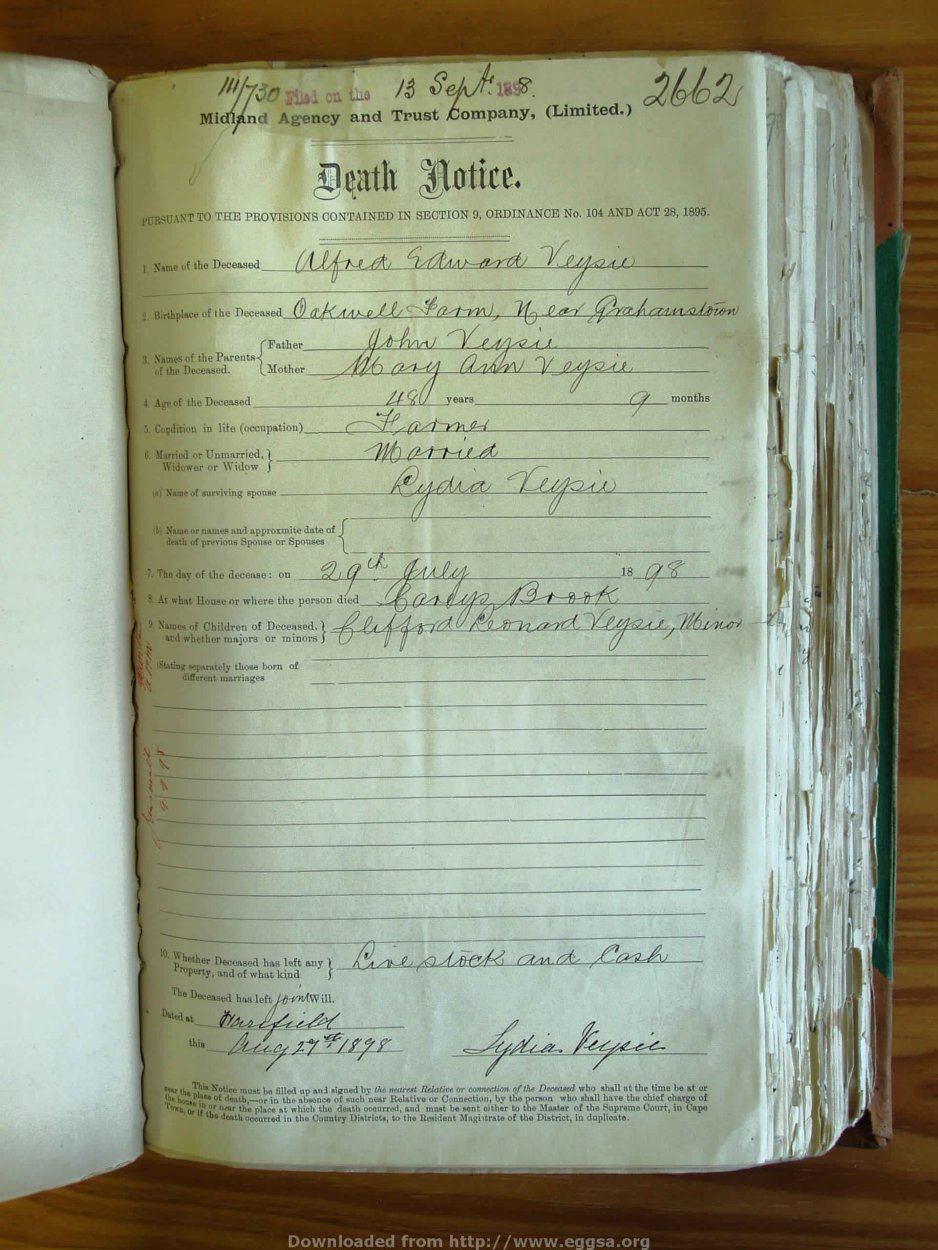 111/730 Filed on the 13 Sept. 1898. 2662
Midland Agency and Trust Company, (Limited.)
Death Notice.
PURSUANT TO THE PROVISIONS CONTAINED IN SECTION 9, ORDINANCE No. 104 AND ACT 28, 1895.
1. Name of the Deceased Alfred Edward Veysie
2. Birthplace of the Deceased Oakwell Farm, Near Grahamstown
3. Names of the Parents of the Deceased. { Father John Veysie
Mother Mary Ann Veysie
4. Age of the Deceased 48 years 9 months
5. Condition in life (occupation) Farmer
6. Married or Unmarried, } Married
Widower or Widow
(a) Name of surviving spouse Lydia Veysie
(b) Name or names and approxmite date of {
death of previous Spouse or Spouses
7. The day of the decease: on 29th July 18 98
8. At what House or where the person died Careys Brook
9. Names of Children of Deceased, } Clifford Leonard Veysie, Minor
and whether majors or minors
(Stating separately those born of
different marriages
10. Whether Deceased has left any } Live stock and Cash
Property, and of what kind
The Deceased has left joint Will.
Dated at Harefield
this Aug 27th 1898 Lydia Veysie
This Notice must be filled up and signed by the nearest Relative or connection of the Deceased who shall at the time be at or
near the place of death,—or in the absence of such near Relative or Connection, by the person who shall have the chief charge of
the house in or near the place at which the death occurred, and must be sent either to the Master of the Supreme Court, in Cape
Town, or if the death occurred in the Country Districts, to the Resident Magistrate of the District, in duplicate.
Downloaded from http://www.eggsa.org